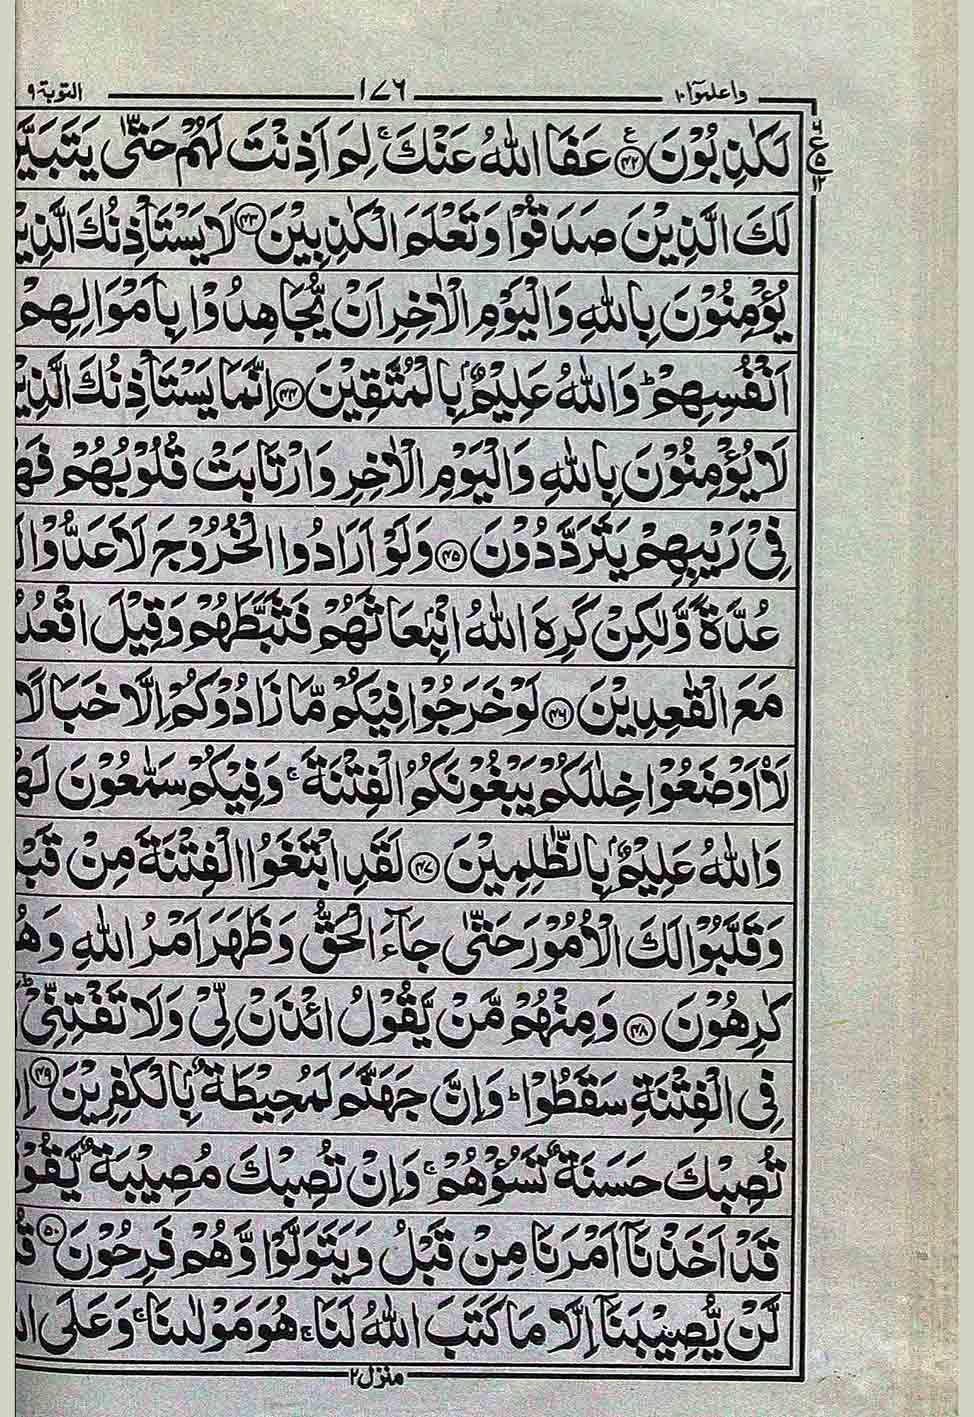 واعلموا۱۰ ۱۷۶ التوبة۹
ع ۵ ۱۲
لَكٰذِبُوْنَ ﴿۴۲﴾ ع عَفَا اللّٰهُ عَنْكَ ۚ لِمَ اَذِنْتَ لَهُمْ حَتّٰى
لَكَ الَّذِيْنَ صَدَقُوْا وَتَعْلَمَ الْكٰذِبِيْنَ ﴿۴۳﴾ لَا يَسْتَاْذِنُكَ
يُؤْمِنُوْنَ بِاللّٰهِ وَالْيَوْمِ الْاٰخِرِ اَنْ يُّجَاهِدُوْا بِاَمْوَالِهِمْ
اَنْفُسِهِمْ ؕ وَاللّٰهُ عَلِيْمٌۢ بِالْمُتَّقِيْنَ ﴿۴۴﴾ اِنَّمَا يَسْتَاْذِنُكَ
لَا يُؤْمِنُوْنَ بِاللّٰهِ وَالْيَوْمِ الْاٰخِرِ وَارْتَابَتْ قُلُوْبُهُمْ
فِيْ رَيْبِهِمْ يَتَرَدَّدُوْنَ ﴿۴۵﴾ وَلَوْ اَرَادُوا الْخُرُوْجَ لَاَعَدُّوْا
عُدَّةً وَّلٰكِنْ كَرِهَ اللّٰهُ انْۢبِعَاثَهُمْ فَثَبَّطَهُمْ وَقِيْلَ
مَعَ الْقٰعِدِيْنَ ﴿۴۶﴾ لَوْ خَرَجُوْا فِيْكُمْ مَّا زَادُوْكُمْ اِلَّا خَبَالًا
لَا۟اَوْضَعُوْا خِلٰلَكُمْ يَبْغُوْنَكُمُ الْفِتْنَةَ ۚ وَفِيْكُمْ سَمّٰعُوْنَ
وَاللّٰهُ عَلِيْمٌۢ بِالظّٰلِمِيْنَ ﴿۴۷﴾ لَقَدِ ابْتَغَوُا الْفِتْنَةَ مِنْ
وَقَلَّبُوْا لَكَ الْاُمُوْرَ حَتّٰى جَآءَ الْحَقُّ وَظَهَرَ اَمْرُ اللّٰهِ
كٰرِهُوْنَ ﴿۴۸﴾ وَمِنْهُمْ مَّنْ يَّقُوْلُ ائْذَنْ لِّيْ وَلَا تَفْتِنِّيْ ؕ
فِي الْفِتْنَةِ سَقَطُوْا ؕ وَاِنَّ جَهَنَّمَ لَمُحِيْطَةٌۢ بِالْكٰفِرِيْنَ ﴿۴۹﴾
تُصِبْكَ حَسَنَةٌ تَسُؤْهُمْ ۚ وَاِنْ تُصِبْكَ مُصِيْبَةٌ
قَدْ اَخَذْنَآ اَمْرَنَا مِنْ قَبْلُ وَيَتَوَلَّوْا وَّهُمْ فَرِحُوْنَ ﴿۵۰﴾
لَّنْ يُّصِيْبَنَآ اِلَّا مَا كَتَبَ اللّٰهُ لَنَا ۚ هُوَ مَوْلٰىنَا ۚ وَعَلَى
منزل۲